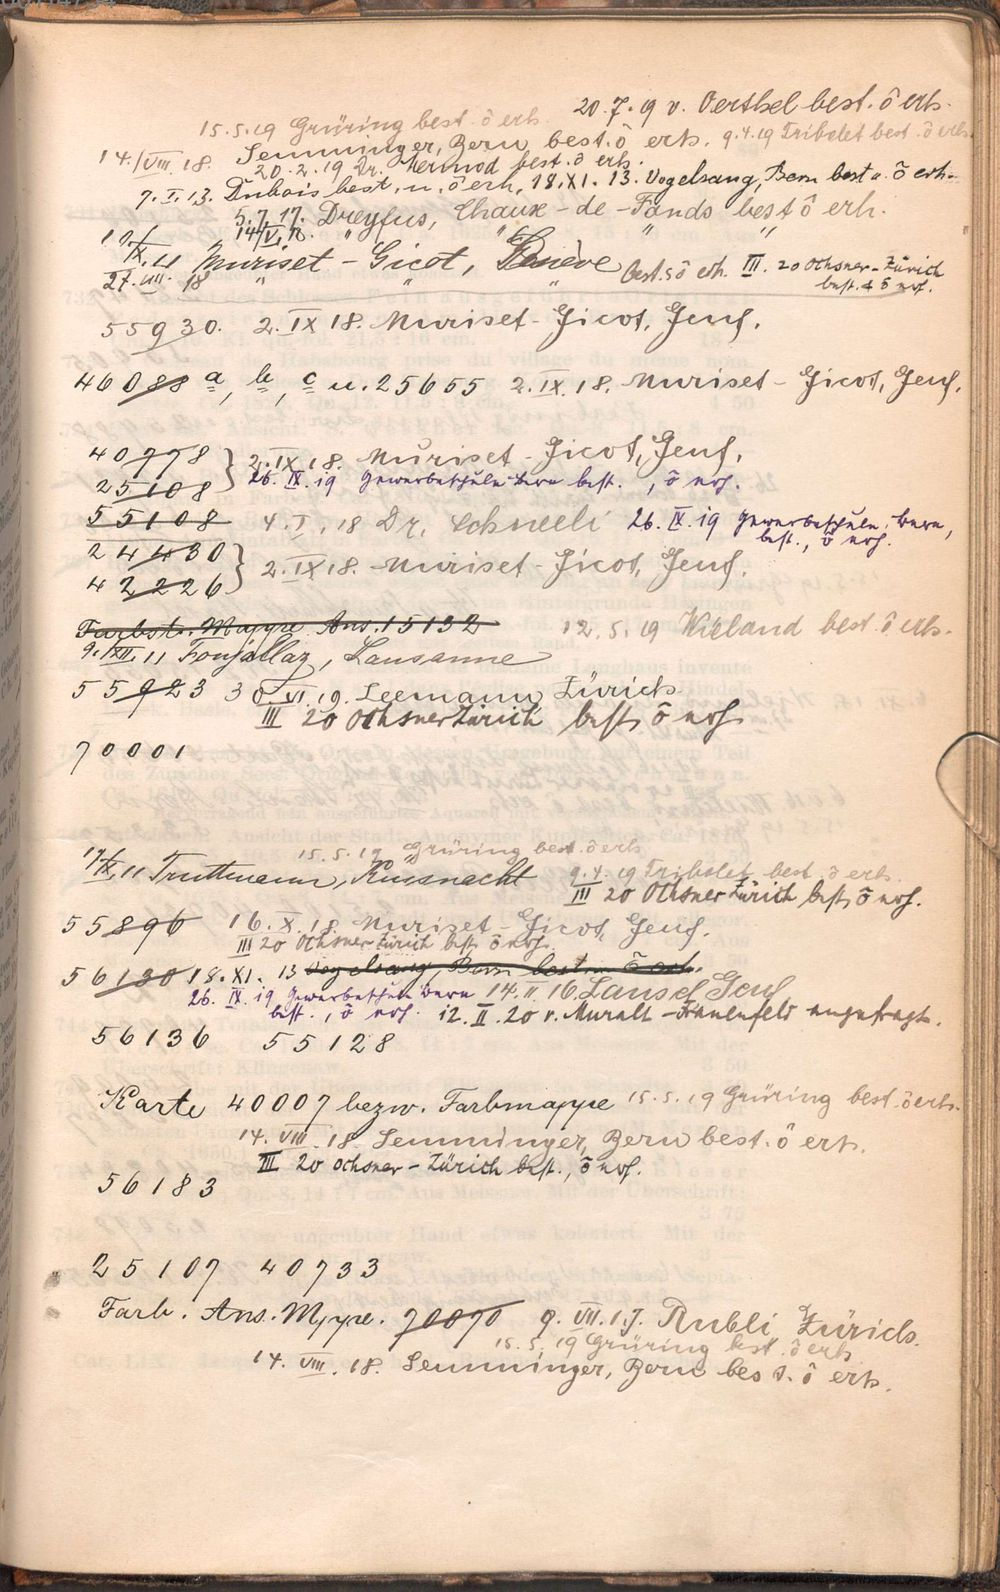 20.7.19 v. Oerthel best. ō erh.
15.5.19 Grüring best. ō erh.
14./VIII. 18. Semminger, Bern, best. ō erh. 9.4.19 Tribolet best. ō erh.
20.2.19 Dr. Mermod best. ō erh.
7.I.13. Dubois best. u. ō erh. 18.XI.13. Vogelsang, Bern best u. ō erh.
5.7.17. Dreyfus, Chaux-de-Fonds best ō erh.
14/V.18. " " "
/IX.11 Muriset-Gicot, Genève best. s ō erh. III. 20 Ochsner-Zürich
27.VIII. 18 " " " best. ō erh.
55930. 2.IX 18. Muriset-Gicot, Genf.
46088 a, b, c u. 25655 2.IX.18. Muriset-Gicot, Genf.
40778 } 2.IX 18. Muriset-Gicot, Genf.
25108 } 26.IX.19 Gewerbeschule Bern best., ō erh.
55108 4.I.18 Dr. Schneeli 26.IX 19 Gewerbeschule Bern,
best., ō erh.
24430 }
42226 } 2.IX 18. Muriset-Gicot, Genf.
Farbstr. Mappe Ans. 15132 12.5.19 Wieland best. ō erh.
9./XII.11 Fonjallaz, Lausanne
55923 30.VI.19. Seemann Zürich
III 20 Ochsner Zürich best, ō erh
70001
15.5.19 Grüring best. ō erh
/IX.11 Truttmann, Küssnacht 9.4.19 Tribolet best. ō erh.
III 20 Ochsner Zürich best, ō erh.
55896 16.X.18. Muriset-Gicot, Genf.
III 20 Ochsner-Zürich best, ō erh.
56130 18.XI. 13 Vogelsang, Bern best u. ō erh.
26.IX.19 Gewerbeschule Bern 14.II.16. Genf
best., ō erh. 12.II.20 v. Muralt-Frauenfeld angefragt.
56136 55128
Karte 40007 bezw. Farbmappe 15.5.19 Grüring best. ō erh.
14. VIII. 18. Semminger, Bern best. ō erh.
III 20 Ochsner-Zürich best., ō erh.
56183
25107 40733
Farb. Ans. Mppe. 70070 9. VII. 17. Rubli Zürich.
15.5.19 Grüring best. ō erh
14. VIII. 18. Semminger, Bern best. ō erh.